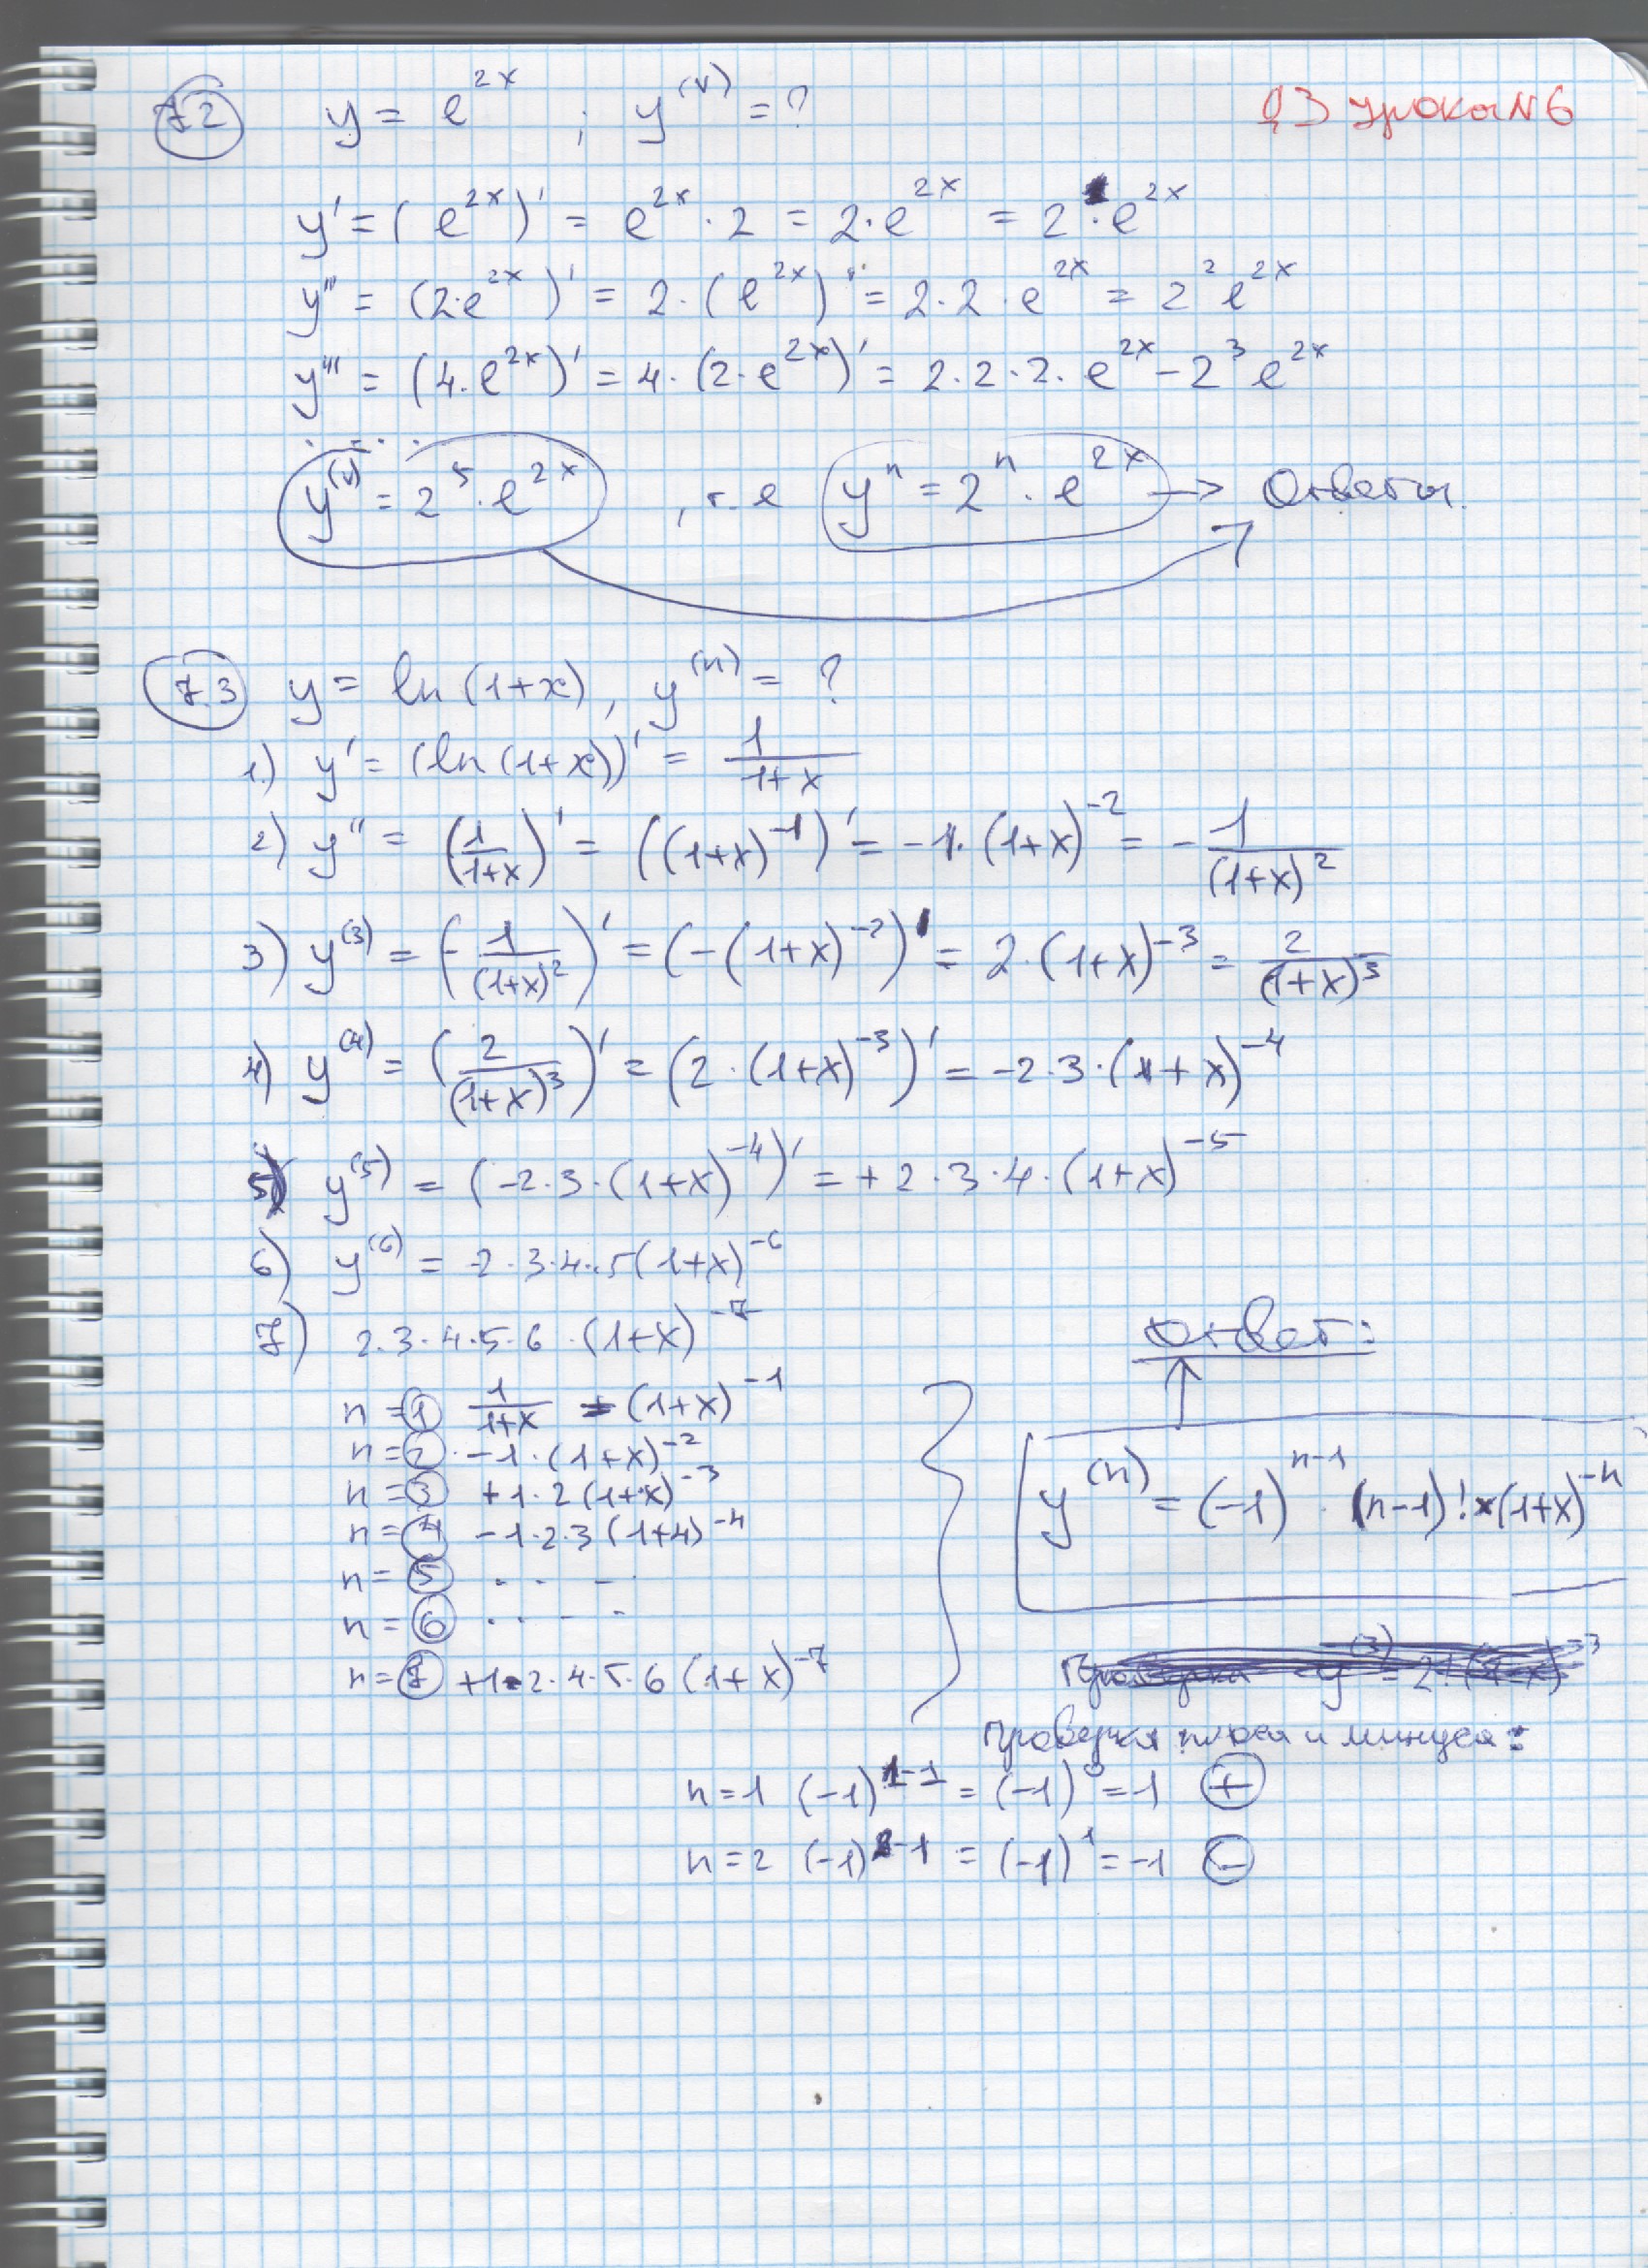 ДЗ урока N6
7.2 y = e^{2x} ; y^{(V)} = ?
y' = (e^{2x})' = e^{2x} · 2 = 2·e^{2x} = 2 · e^{2x}
y'' = (2·e^{2x})' = 2·(e^{2x})' = 2·2·e^{2x} = 2^2 e^{2x}
y''' = (4·e^{2x})' = 4·(2·e^{2x})' = 2·2·2·e^{2x} - 2^3 e^{2x}
y^{(V)} = 2^5 · e^{2x} , т.е y^n = 2^n · e^{2x} → Ответы
7.3 y = ln(1+x), y^{(n)} = ?
1.) y' = (ln(1+x))' = \frac{1}{1+x}
2) y'' = (\frac{1}{1+x})' = ((1+x)^{-1})' = -1·(1+x)^{-2} = -\frac{1}{(1+x)^2}
3) y^{(3)} = (-\frac{1}{(1+x)^2})' = (-(1+x)^{-2})' = 2·(1+x)^{-3} = \frac{2}{(1+x)^3}
4) y^{(4)} = (\frac{2}{(1+x)^3})' = (2·(1+x)^{-3})' = -2·3·(1+x)^{-4}
5) y^{(5)} = (-2·3·(1+x)^{-4})' = +2·3·4·(1+x)^{-5}
6) y^{(6)} = -2·3·4·5(1+x)^{-6}
7) 2·3·4·5·6·(1+x)^{-7}
n = 1 \frac{1}{1+x} = (1+x)^{-1}
n = 2 · -1·(1+x)^{-2}
n = 3 +1·2(1+x)^{-3}
n = 4 -1·2·3(1+4)^{-4}
n = 5 . . –
n = 6 . . – -
n = 7 +1·2·4·5·6(1+x)^{-7}
Ответ:
y^{(n)} = (-1)^{n-1} · (n-1)! × (1+x)^{-n}
Проверка плюса и минуса:
n = 1 (-1)^{1-1} = (-1)^0 = 1 +
n = 2 (-1)^{2-1} = (-1)^1 = -1 -